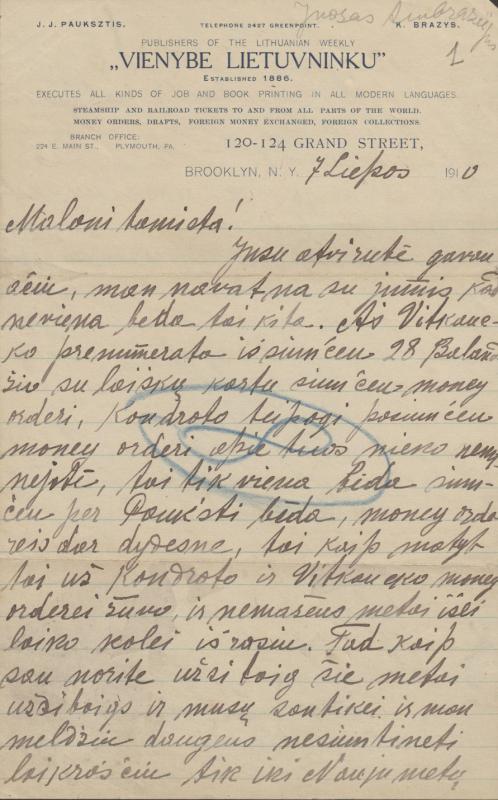 J. J. PAUKSZTIS. TELEPHONE 2427 GREENPOINT. K. BRAZYS.
Juozas Ambraziejus
1
PUBLISHERS OF THE LITHUANIAN WEEKLY
„VIENYBE LIETUVNINKU”
ESTABLISHED 1886.
EXECUTES ALL KINDS OF JOB AND BOOK PRINTING IN ALL MODERN LANGUAGES.
STEAMSHIP AND RAILROAD TICKETS TO AND FROM ALL PARTS OF THE WORLD.
MONEY ORDERS, DRAFTS, FOREIGN MONEY EXCHANGED, FOREIGN COLLECTIONS.
BRANCH OFFICE:
224 E. MAIN ST., PLYMOUTH, PA.
120-124 GRAND STREET,
BROOKLYN, N. Y. 7 Liepos 1910
Maloni tamista!
Jusu atvirutė gavau
ačiu, man navatna su jumis kad
neviena beda tai kita. Aš Vitkaus-
ko prenumerata išsiunčeu 28 Balan
žio su laišku kartu siunčeu money
orderi, Kondroto teipogi posiunčeu
money orderi apie tuos nieko nemi
nejotė, tai tik viena bėda siun-
čeu per Paukšti bėda, money orde
reis dar dydesne, tai kaip matyt
tai už Kondroto ir Vitkausko money
orderei žuvo, ir nemažeus metai išei
laiko kolei išrasiu. Tad kaip
sau norite užsibaig šie metai
užsibaigs ir musų santikei ir man
meldžiu daugeus nesiuntineti
laikraščiu tik iki Nauju metų